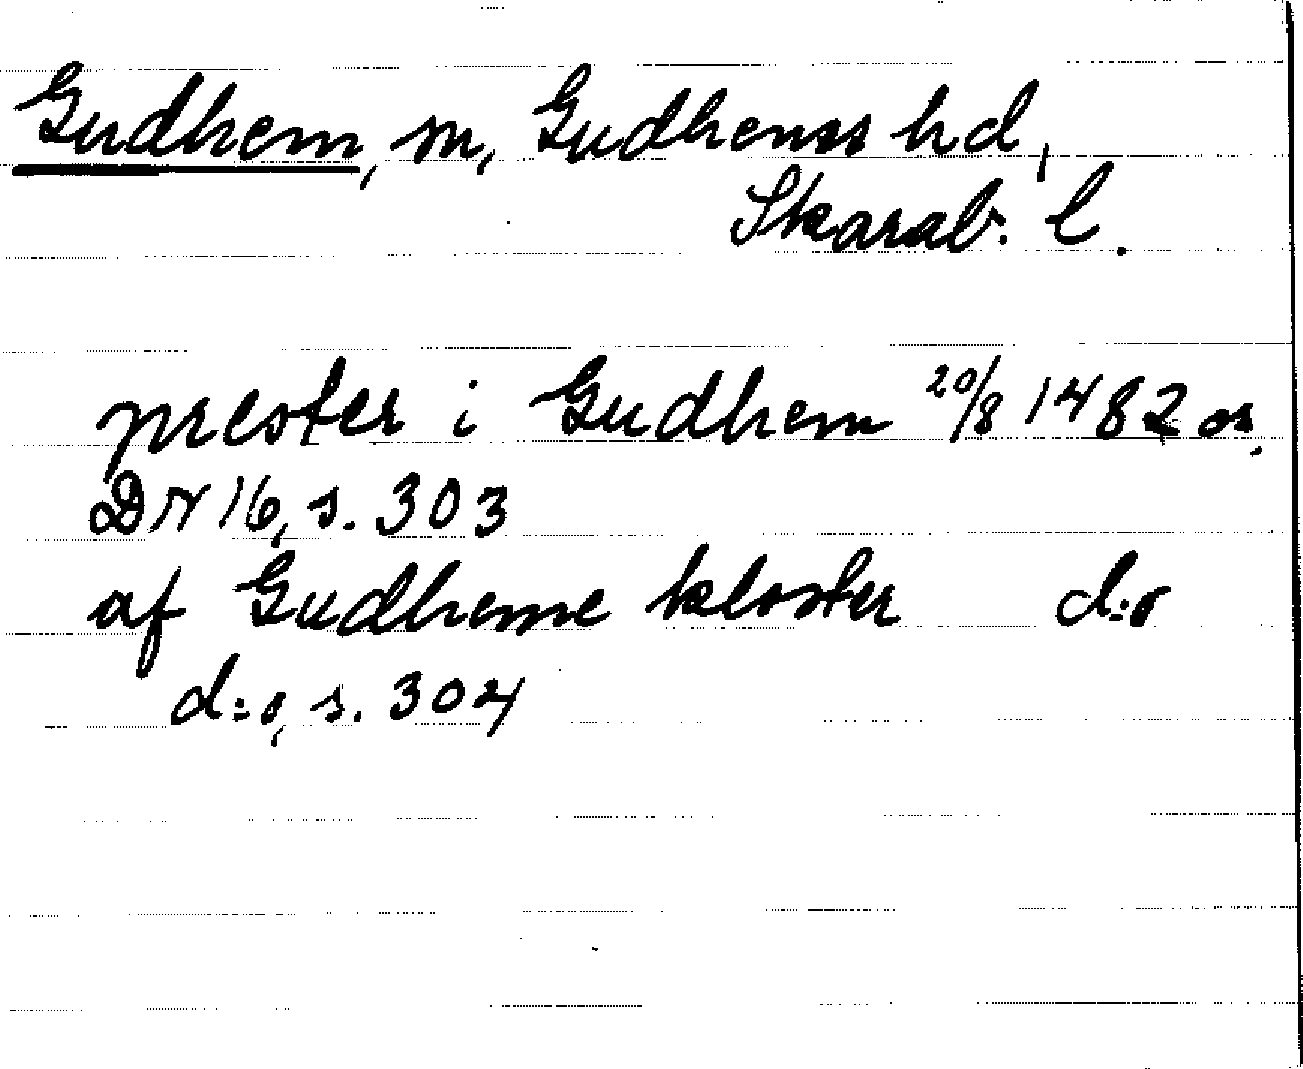 Gudhem, sn, Gudhems hd,
Skarab. l.
prester i Gudhem 20/8 1482 or.
DN 16, s. 303
af Gudheme kloster d:o
d:o, s. 304